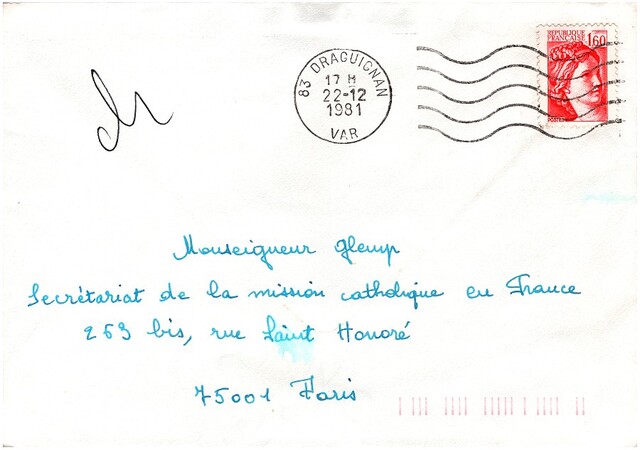 REPUBLIQUE
FRANÇAISE
1,60
POSTES
83 DRAGUIGNAN
17 H
22-12
1981
VAR
Monseigneur Glemp
Secrétariat de la mission catholique en France
263 bis, rue Saint Honoré
75001 Paris